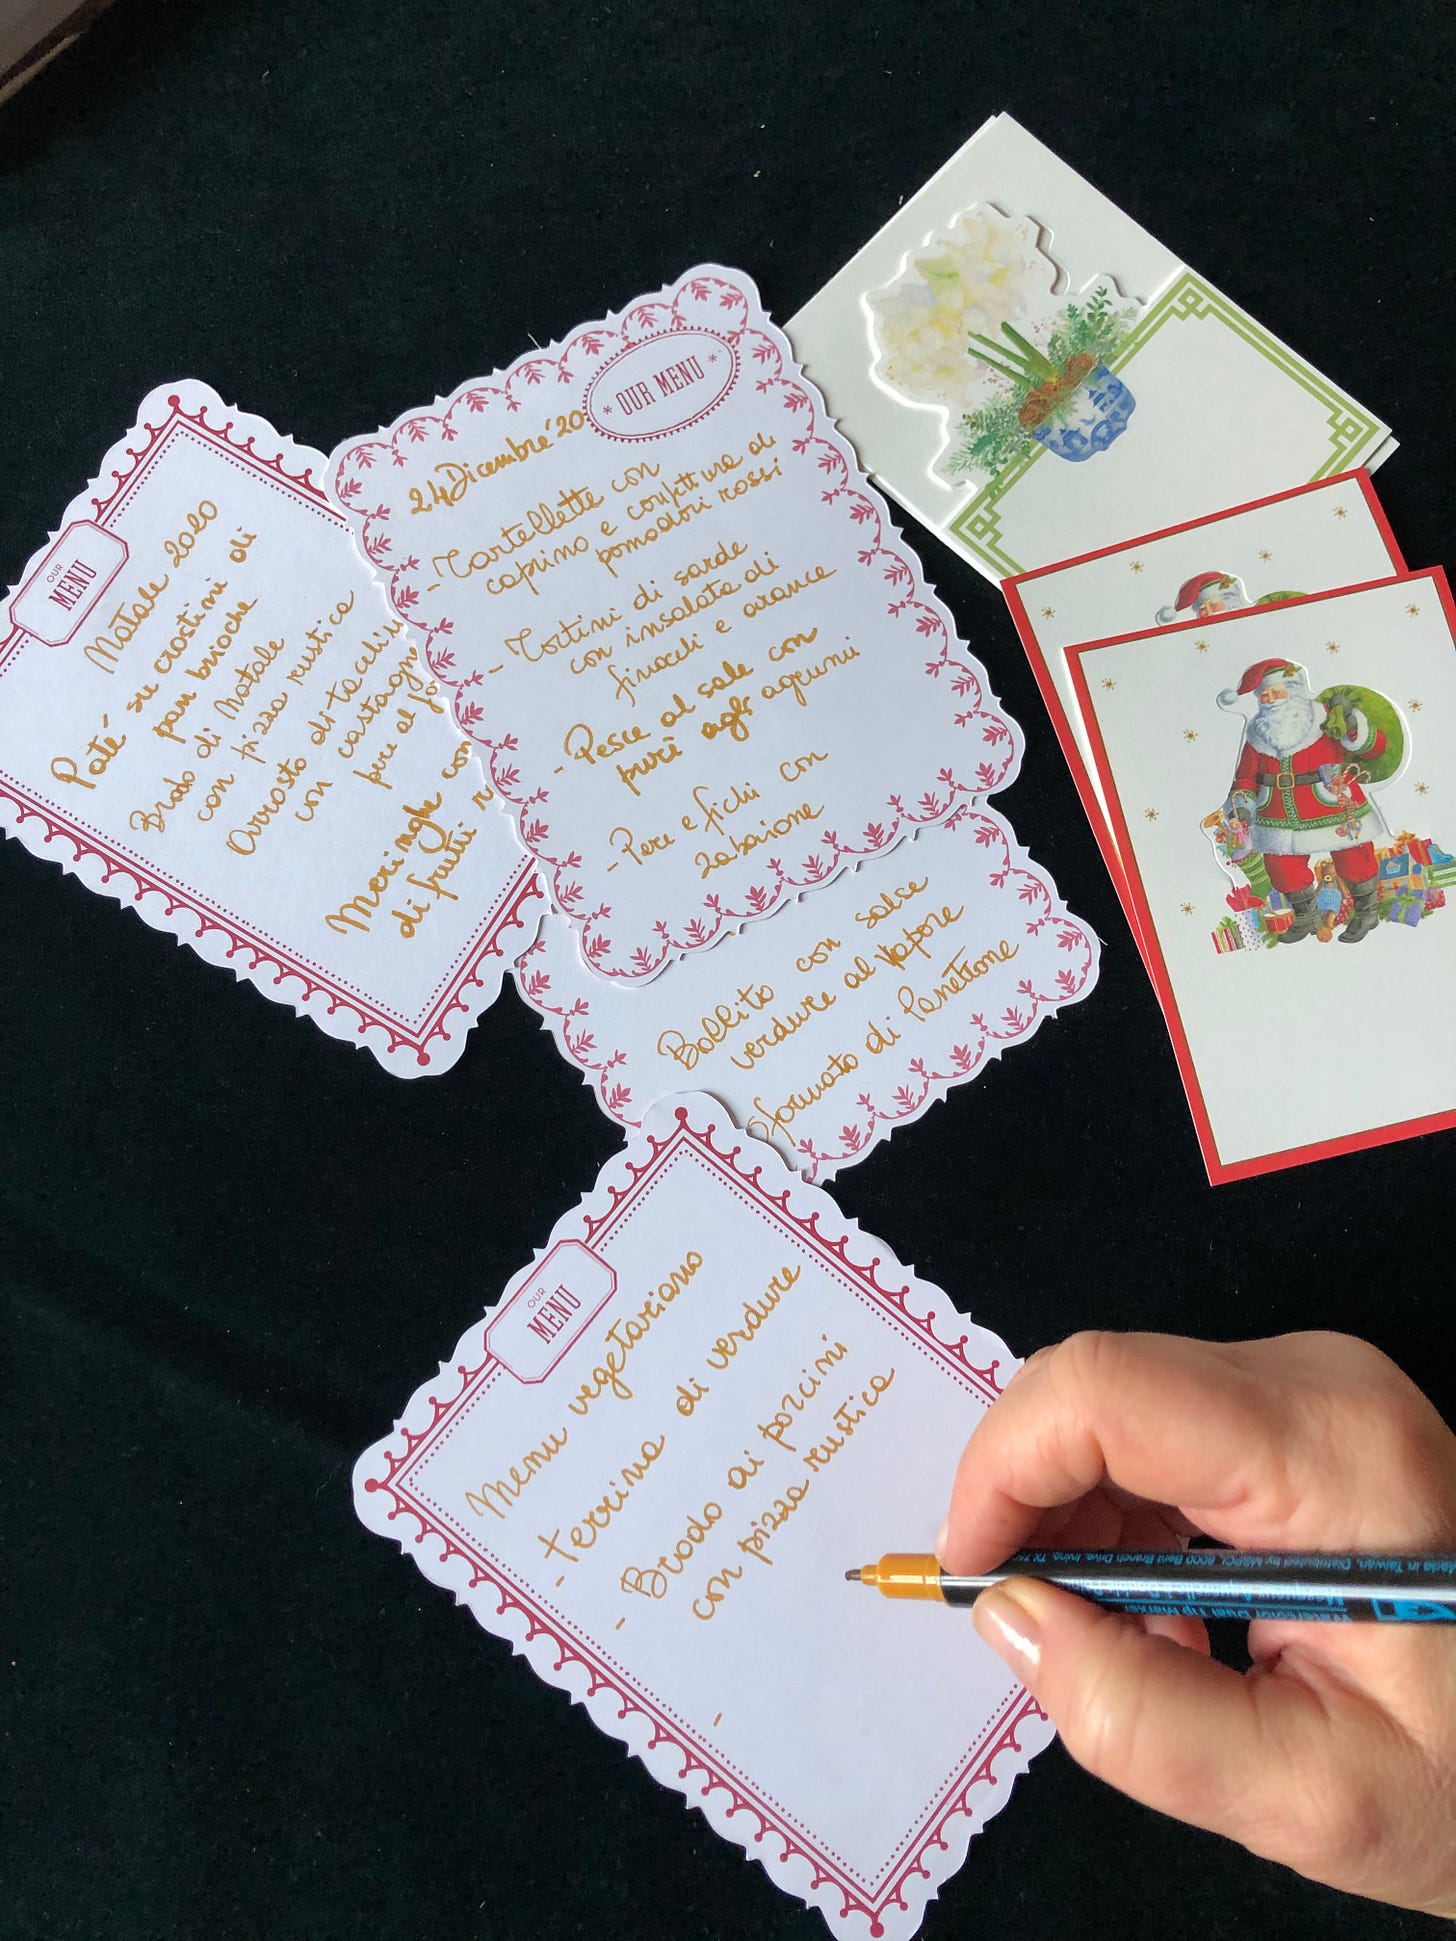 OUR
MENU
Natale 2020
Paté su crostini di
pan brioche
Brodo di Natale
con pizza rustica
Arrosto di
con castagne
pere al
Meringhe con
di frutti
* OUR MENU *
24 Dicembre '20
- Tartellette con
caprino e confettura di
pomodori rossi
- Tortini di sarde
con insalata di
finocchi e arance
- Pesce al sale con
purè agli agrumi
- Pere e fichi con
zabaione
Bollito con salse
verdure al vapore
Sformato di Panettone
OUR
MENU
Menu vegetariano
- terrina di verdure
- Brodo di porcini
con pizza rustica
-
Watercolor Dual Tip Marker
Made in Taiwan, Distributed by MSPCI, 8000 Bent Branch Drive, Irving, TX